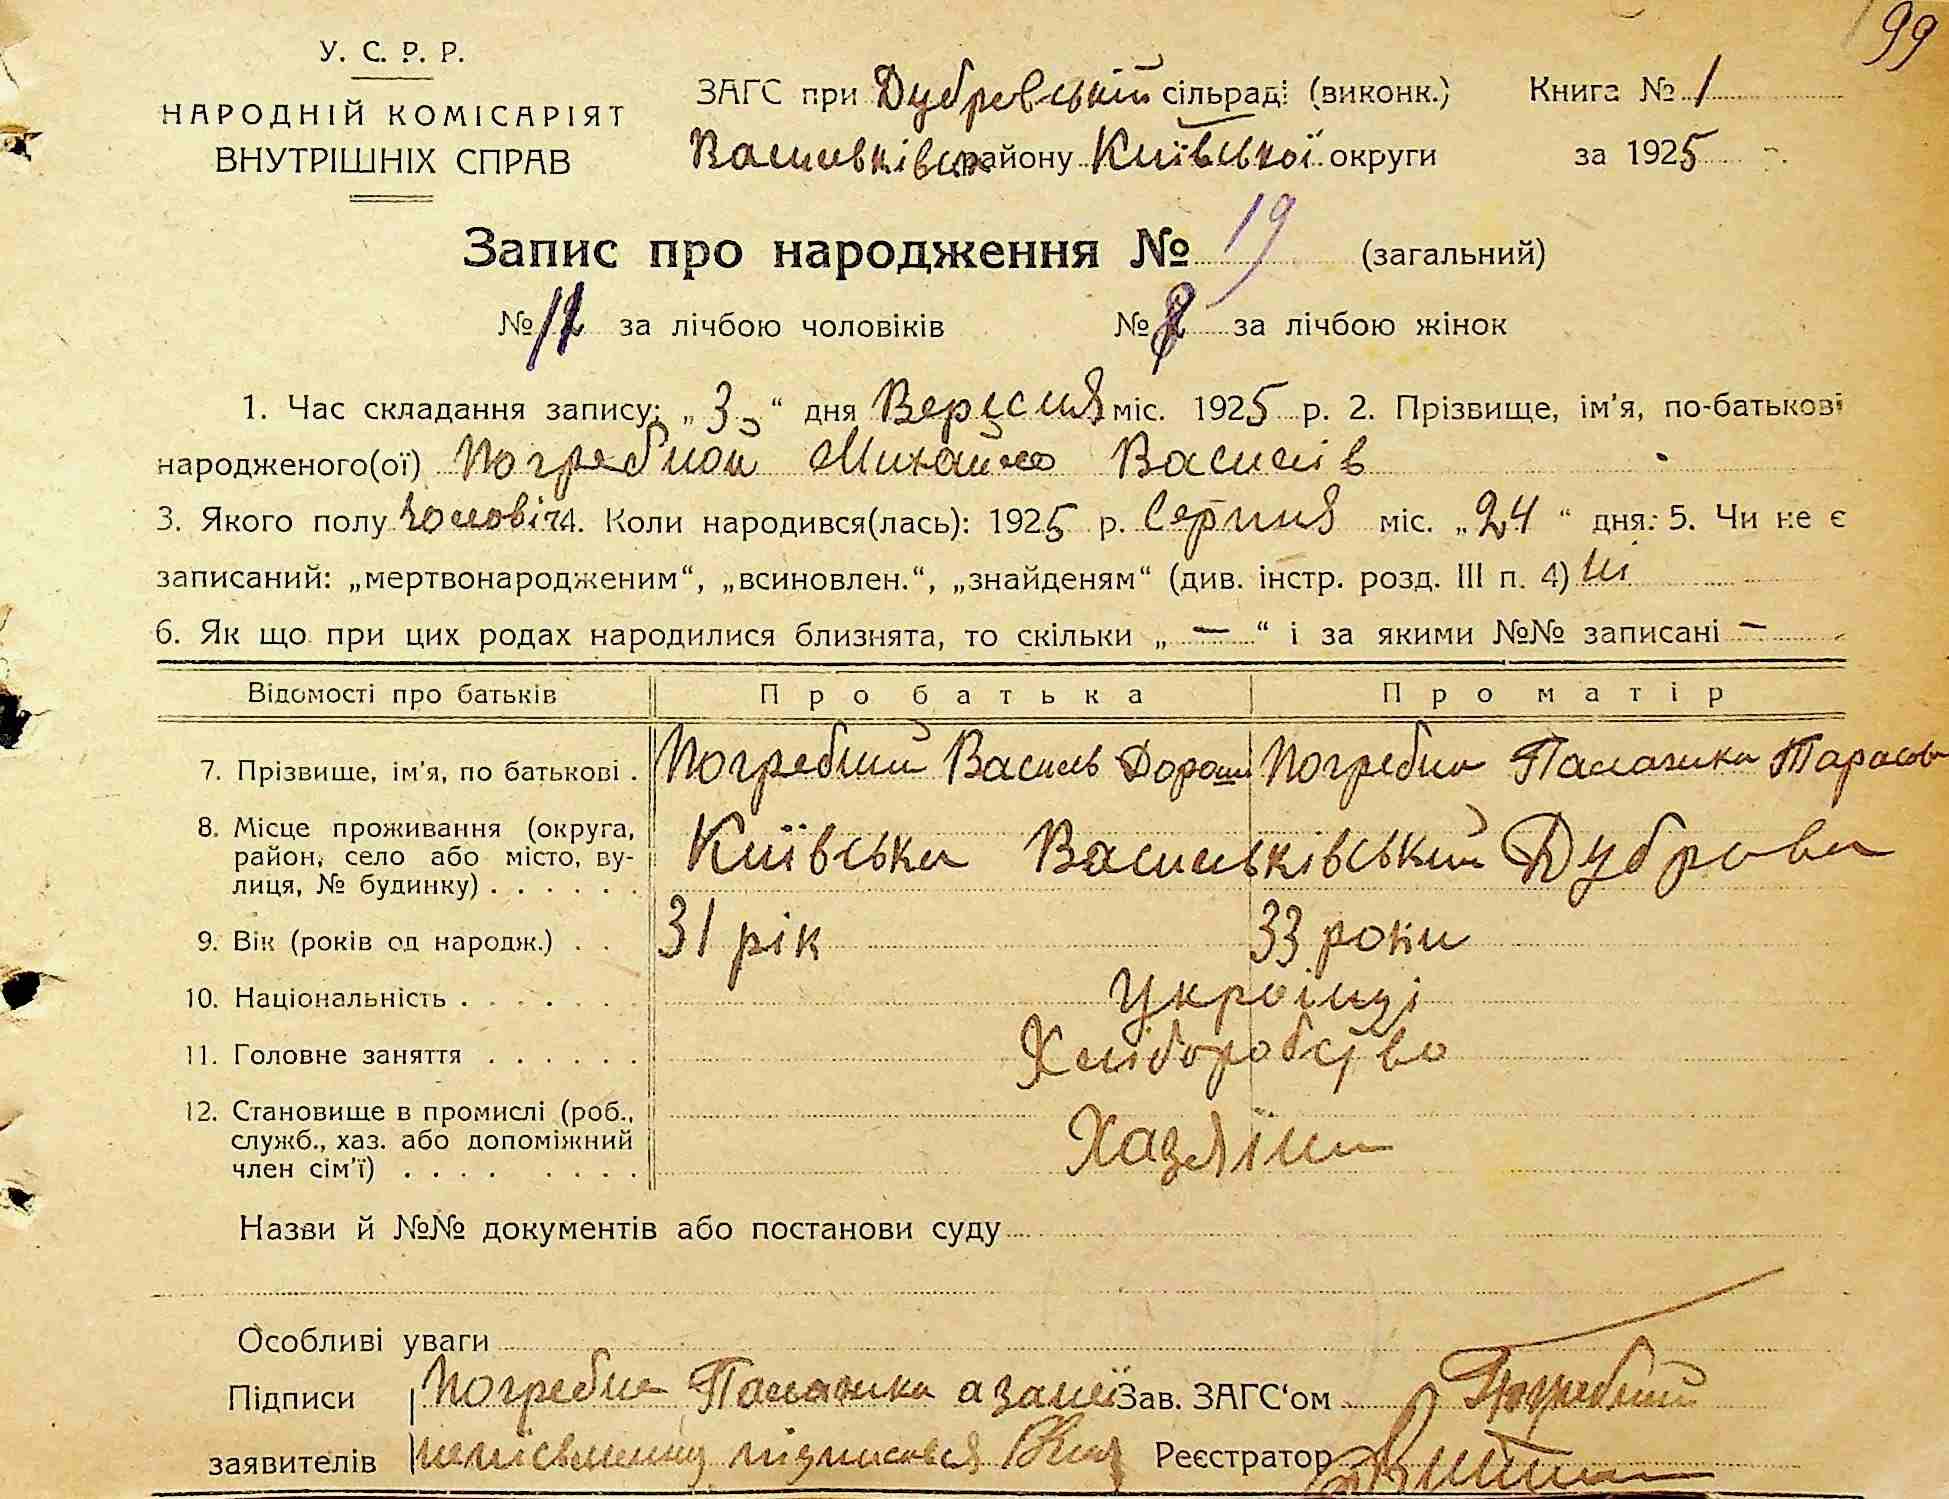 99
У. С. Р. Р.
НАРОДНІЙ КОМІСАРІЯТ
ВНУТРІШНІХ СПРАВ
ЗАГС при Дубровській сільраді (виконк.) Книга № 1
Васильківськ району Київської округи за 1925
Запис про народження № 19 (загальний)
№ 12 за лічбою чоловіків № 8 за лічбою жінок
1. Час складання запису: „3" дня Вересня міс. 1925 р. 2. Прізвище, ім'я, по-батькові
народженого(ої) Погребной Михайло Василів
3. Якого полу чоловіч 4. Коли народився(лась): 1925 р. Серпня міс. „24" дня. 5. Чи не є
записаний: „мертвонародженим", „всиновлен.", „знайденям" (див. інстр. розд. III п. 4) Ні
6. Як що при цих родах народилися близнята, то скільки „—" і за якими №№ записані —
Відомості про батьків Про батька Про матір
7. Прізвище, ім'я, по батькові . Погребний Василь Дорош Погребна Палажка Тарасов
8. Місце проживання (округа, район, село або місто, ву-
лиця, № будинку) . . . . . . Київська Васильківський Дуброва
9. Вік (років од народж.) . . 31 рік 33 роки
10. Національність . . . . . . . Українці
11. Головне заняття . . . . . . Хліборобство
12. Становище в промислі (роб.,
служб., хаз. або допоміжний
член сім'ї) . . . . . . . . Хазяїни
Назви й №№ документів або постанови суду
Особливі уваги
Підписи Погребна Палажка а за неї Зав. ЗАГС'ом Погребний
заявителів неписьменну підписався Реєстратор